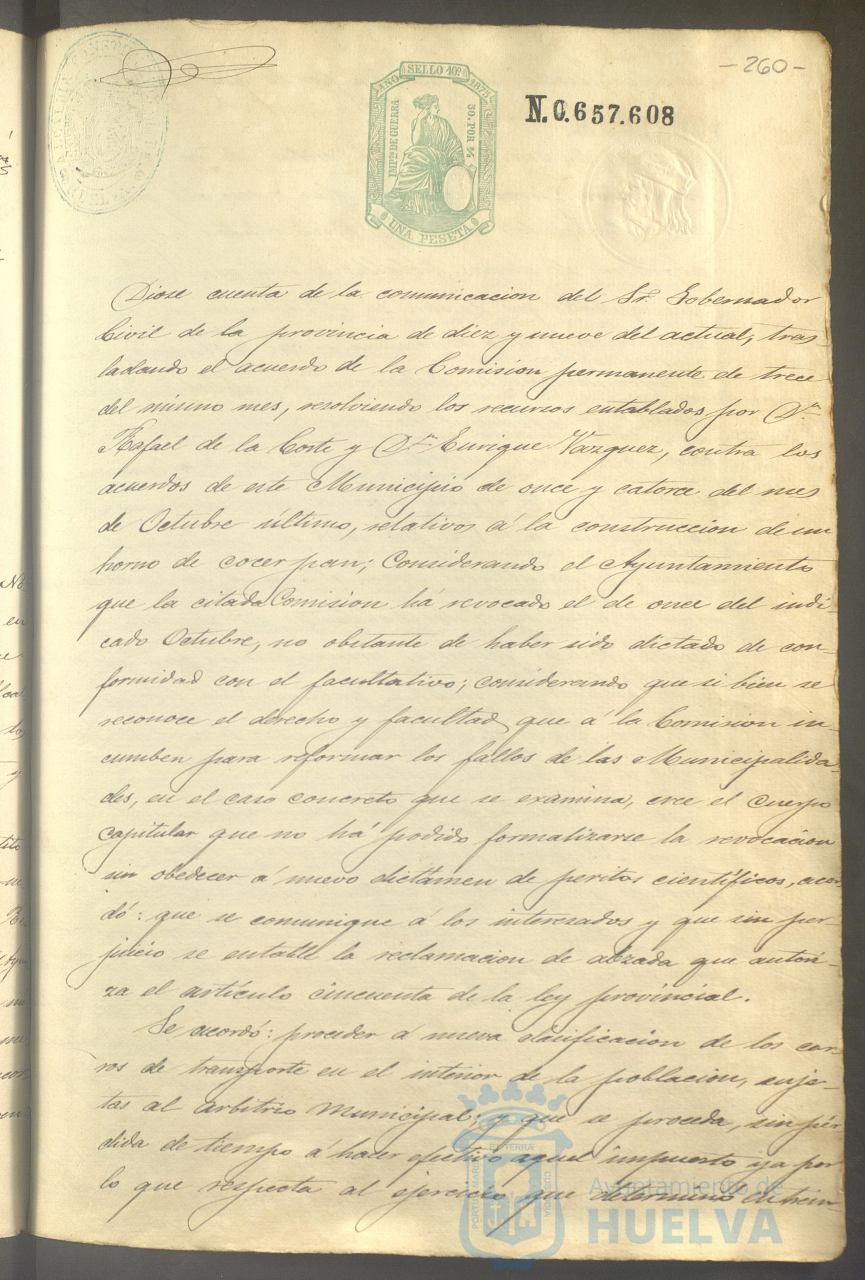 - 260 -
SELLO 10º
AÑO 1875
IMPto DE GUERRA
50. POR %
UNA PESETA
N.0.657.608
Diose cuenta de la comunicacion del Sr. Gobernador
Civil de la provincia de diez y nueve del actual, tras
ladando el acuerdo de la Comision permanente de trece
del mismo mes, resolviendo los recursos entablados por Dn.
Rafael de la Corte y Dn. Enrique Vazquez, contra los
acuerdos de este Municipio de once y catorce del mes
de Octubre último, relativos á la construccion de un
horno de cocer pan; Considerando el Ayuntamiento
que la citada Comision há revocado el de once del indi-
cado Octubre, no obstante de haber sido dictado de con-
formidad con el facultativo; considerando que si bien se
reconoce el derecho y facultad que á la Comision in-
cumben para reformar los fallos de las Municipalida-
des, en el caso concreto que se examina, cree el Cuerpo
capitular que no há podido formalizarse la revocacion
sin obedecer á nuevo dictámen de peritos científicos, acor-
dó: que se comunique á los interesados y que sin per-
juicio se entable la reclamacion de alzada que autori-
za el artículo cincuenta de la ley provincial.
Se acordó: proceder á nueva clasificacion de los car-
ros de transporte en el interior de la poblacion, suje-
tas al arbitrio municipal; y que se proceda, sin pér-
dida de tiempo á hacer efectivo aquel impuesto ya por
lo que respecta al ejercicio que determinó en trein-
Ayuntamiento de
HUELVA